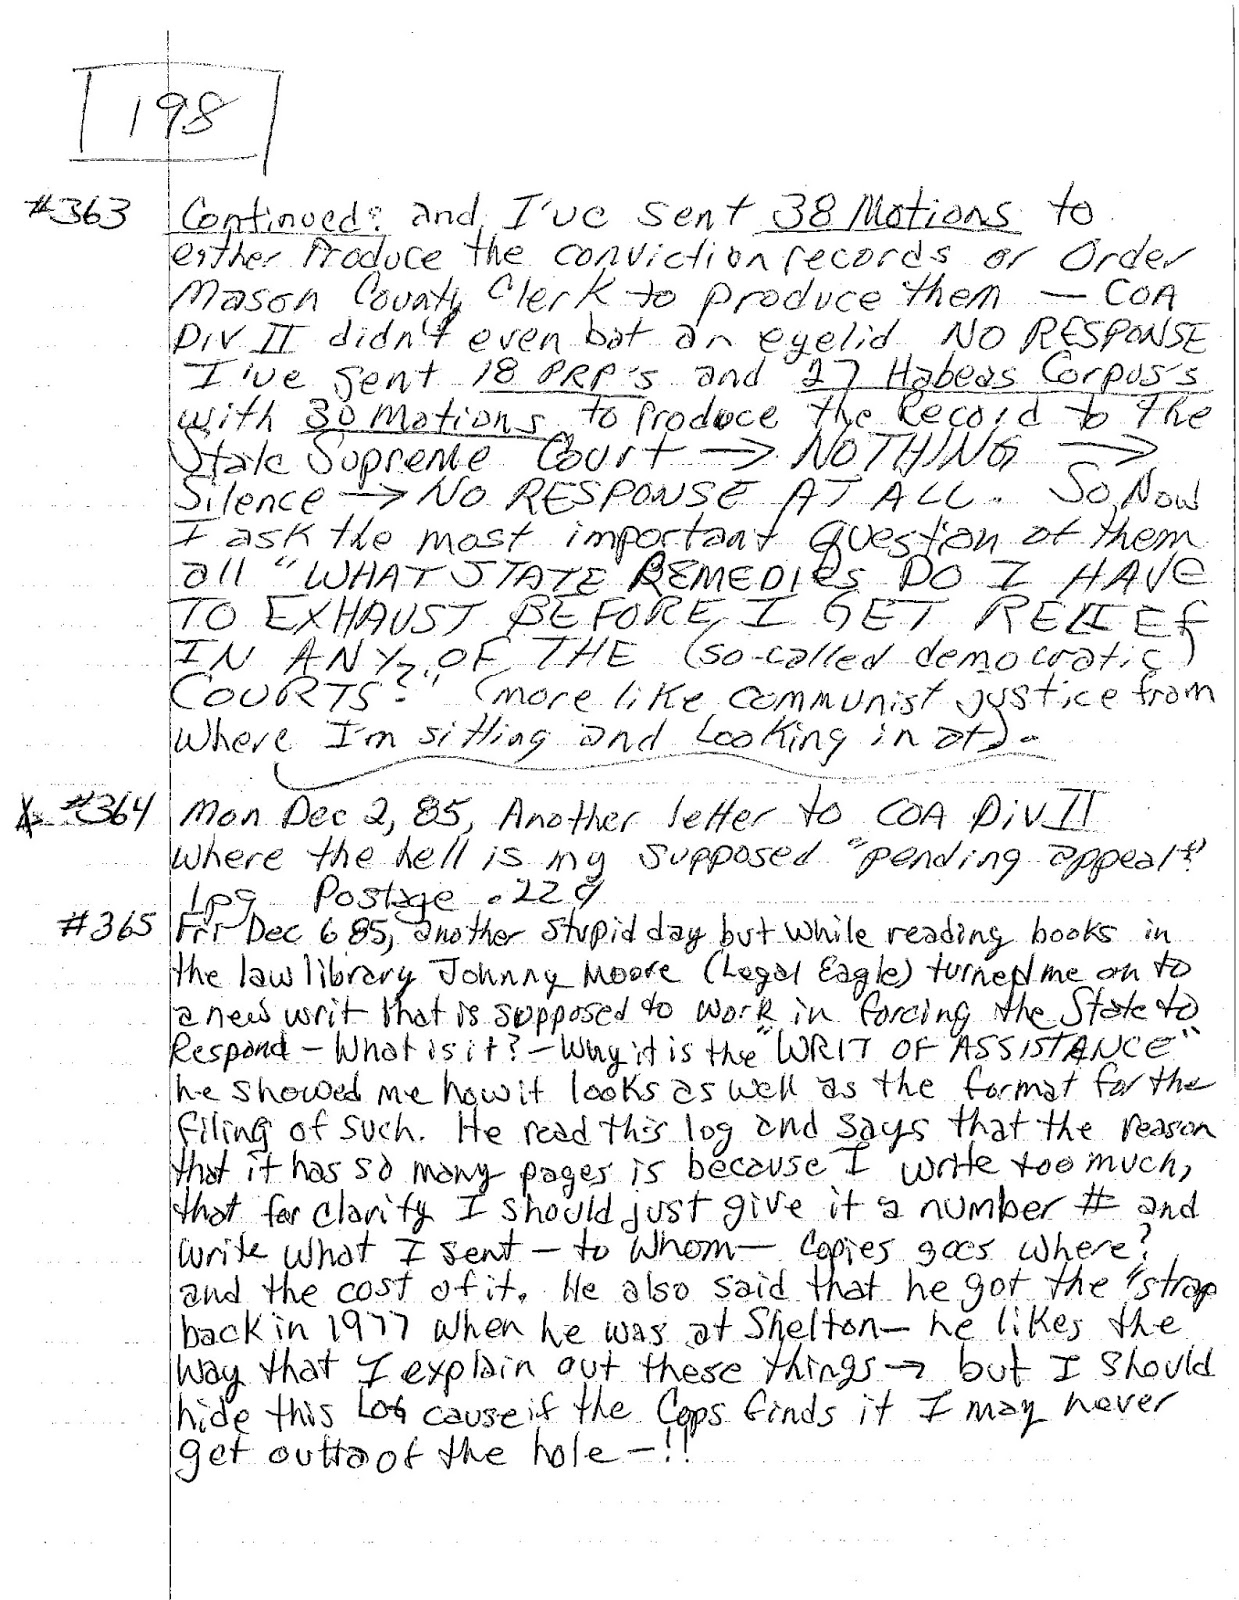 198
#363 Continued: and I've sent 38 Motions to
either Produce the conviction records or Order
Mason County Clerk to produce them — COA
Div II didn't even bat an eyelid NO RESPONSE
I've sent 18 PRP's and 27 Habeas Corpus's
with 30 Motions to Produce the Record to the
State Supreme Court → NOTHING →
Silence → NO RESPONSE AT ALL. So Now
I ask the most important Question of them
all "WHAT STATE REMEDIES DO I HAVE
TO EXHAUST BEFORE I GET RELIEF
IN ANY OF THE (so-called democratic)
COURTS?" (more like communist justice from
where I'm sitting and Looking in at).
#364 Mon Dec 2, 85, Another letter to COA Div II
where the hell is my supposed "pending appeal?"
1pg Postage .22¢
#365 Fri Dec 6 85, another stupid day but while reading books in
the law library Johnny Moore (Legal Eagle) turned me on to
a new writ that is supposed to work in forcing the State to
Respond — What is it? — Why it is the "WRIT OF ASSISTANCE"
he showed me how it looks as well as the format for the
filing of such. He read this log and says that the reason
that it has so many pages is because I write too much,
that for clarity I should just give it a number # and
write what I sent — to whom — Copies goes where?
and the cost of it. He also said that he got the "strap
back in 1977 when he was at Shelton — he likes the
way that I explain out these things → but I should
hide this Log cause if the Cops finds it I may never
get outta of the hole —!!